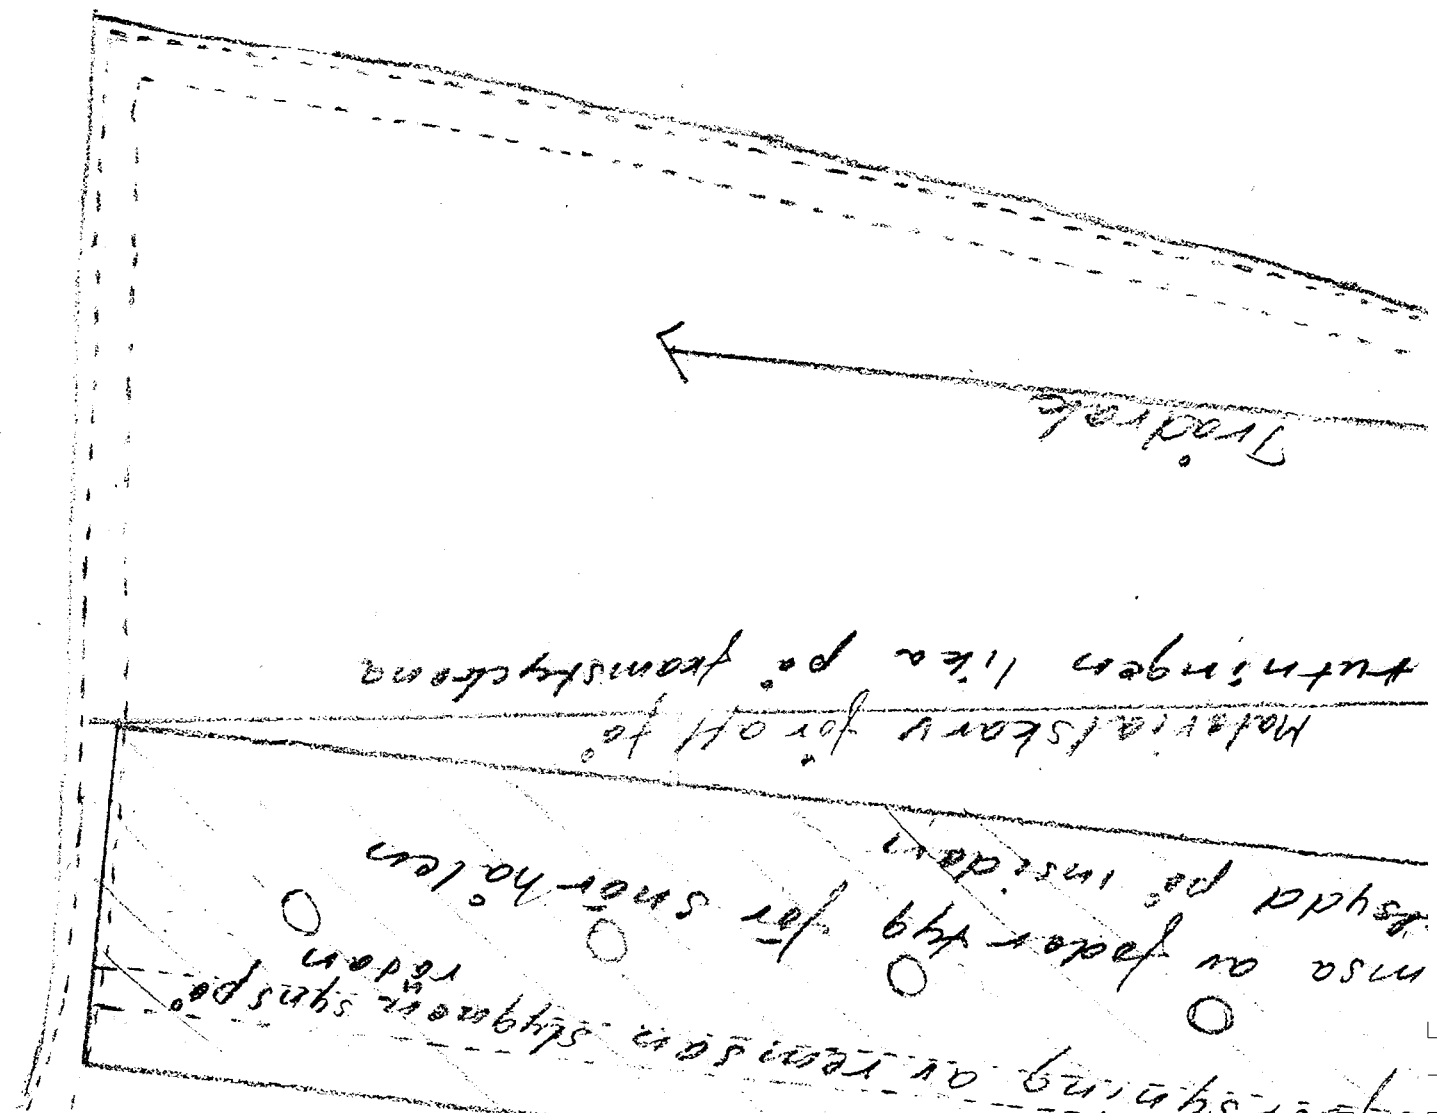 syning av remsan stygnen syns på
rätan
msa av fodertyg för snörhålen
tsydd på insidan
Materialskarv för att få
rutningen lika på framstyckena
Trådrak